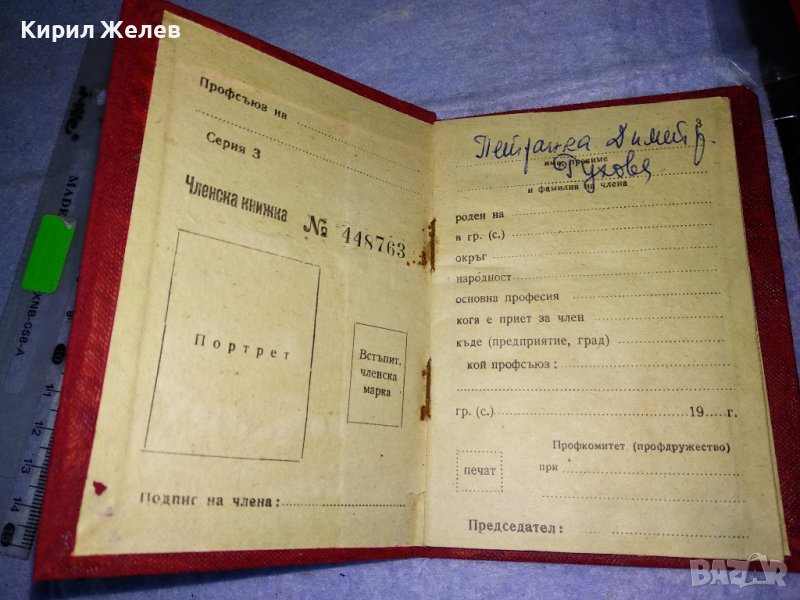 Кирил Желев
Профсъюз на
Серия 3
Членска книжка № 448763
Портрет
Встъпит.
членска
марка
Подпис на члена:
3
Петранка Димитр.
име, презиме
Гухова
и фамилия на члена
роден на
в гр. (с.)
окръг
народност
основна професия
кога е приет за член
къде (предприятие, град)
кой профсъюз:
гр. (с.) 19 г.
Профкомитет (профдружество)
печат
при
Председател:
MADE
XNB-058-A
11
12
13
14
BAZAR